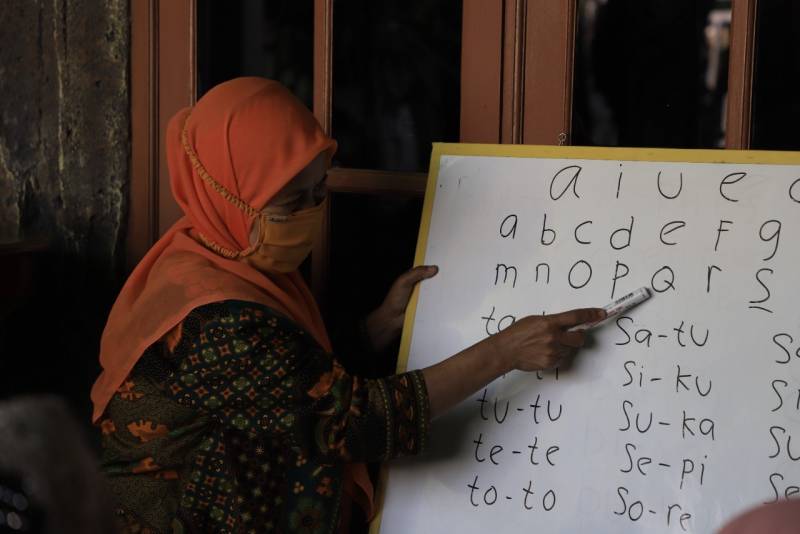 a i u e
a b c d e F g
m n o p Q r S
Sa-tu
Si-ku
tu-tu Su-ka Su
te-te Se-pi Se
to-to So-re